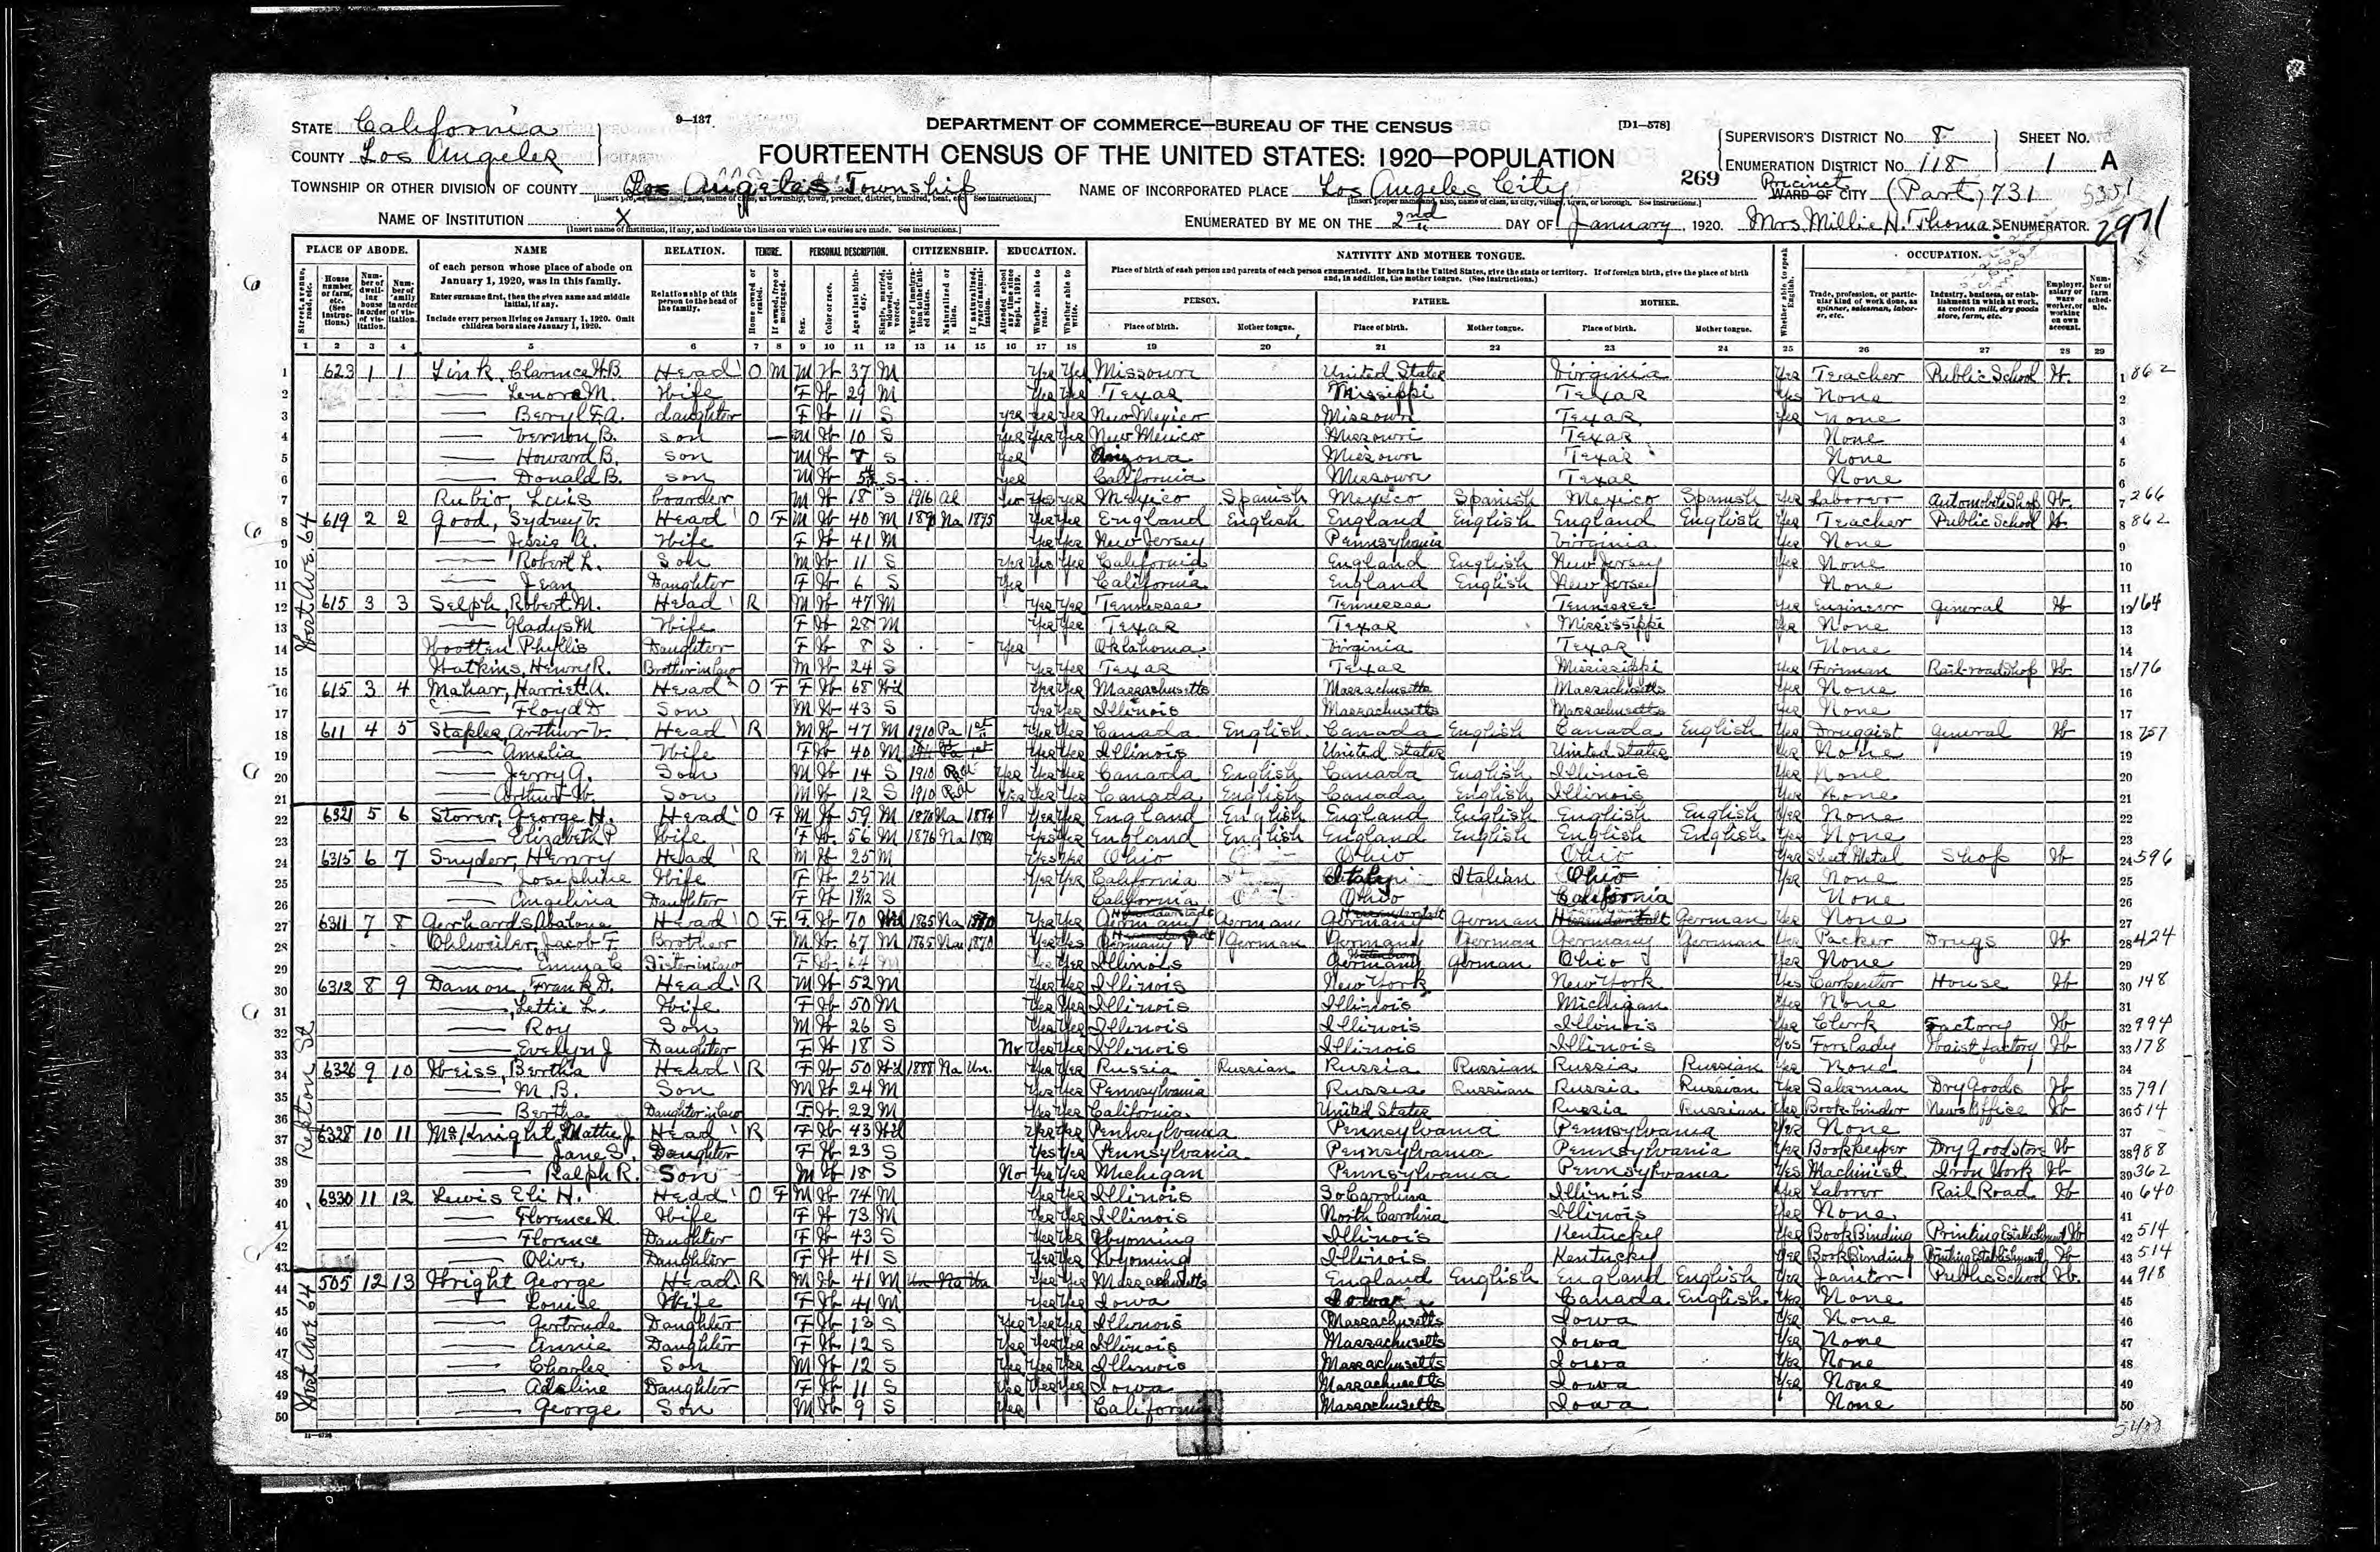 9—137
DEPARTMENT OF COMMERCE—BUREAU OF THE CENSUS
[D1—578]
STATE California
COUNTY Los Angeles
FOURTEENTH CENSUS OF THE UNITED STATES: 1920—POPULATION
SUPERVISOR'S DISTRICT No. 8 SHEET No.
ENUMERATION DISTRICT No. 118 1 A
TOWNSHIP OR OTHER DIVISION OF COUNTY Los Angeles Township
NAME OF INCORPORATED PLACE Los Angeles City
269 Precinct WARD OF CITY (Part) 731 5351
NAME OF INSTITUTION X
[Insert name of institution, if any, and indicate the lines on which the entries are made. See instructions.]
ENUMERATED BY ME ON THE 2nd DAY OF January, 1920. Mrs. Millie H. Thomas ENUMERATOR. 2971
PLACE OF ABODE. NAME RELATION. TENURE. PERSONAL DESCRIPTION. CITIZENSHIP. EDUCATION. NATIVITY AND MOTHER TONGUE. OCCUPATION.
of each person whose place of abode on January 1, 1920, was in this family.
Enter surname first, then the given name and middle initial, if any.
Include every person living on January 1, 1920. Omit children born since January 1, 1920.
Relationship of this person to the head of the family.
Place of birth of each person and parents of each person enumerated. If born in the United States, give the state or territory. If of foreign birth, give the place of birth and, in addition, the mother tongue. (See instructions.)
PERSON. FATHER. MOTHER.
Place of birth. Mother tongue. Place of birth. Mother tongue. Place of birth. Mother tongue.
1 2 3 4 5 6 7 8 9 10 11 12 13 14 15 16 17 18 19 20 21 22 23 24 25 26 27 28 29
1 623 1 1 Link, Clarence W.B. Head O M M W 37 M Yes Yes Missouri United States Virginia Yes Teacher Public School W. 1 862
2 — Lenora M. Wife F W 29 M Yes Yes Texas Mississippi Texas Yes None 2
3 — Beryl F.A. daughter F W 11 S Yes Yes Yes New Mexico Missouri Texas Yes None 3
4 — Vernon B. son M W 10 S Yes Yes Yes New Mexico Missouri Texas None 4
5 — Howard B. son M W 7 S Yes Arizona Missouri Texas None 5
6 — Donald B. son M W S Yes California Missouri Texas None 6
7 Rubio, Luis boarder M W 18 S 1916 Al Yes Yes Mexico Spanish Mexico Spanish Mexico Spanish Yes Laborer Automobile Shop W. 7 266
West Ave. 64
8 619 2 2 Good, Sydney V. Head O F M W 40 M Na 1895 Yes Yes England English England English England English Yes Teacher Public School W. 8 862
9 — Jessie A. Wife F W 41 M Yes Yes New Jersey Pennsylvania Virginia Yes None 9
10 — Robert L. Son M W 11 S Yes Yes Yes California England English New Jersey Yes None 10
11 — Jean Daughter F W 6 S Yes California England English New Jersey None 11
12 615 3 3 Selph, Robert M. Head R M W 47 M Yes Yes Tennessee Tennessee Tennessee Yes Engineer General W 12 164
13 — Gladys M Wife F W 28 M Yes Yes Texas Texas Mississippi Yes None 13
14 Wootten Phyllis Daughter F W 8 S Yes Oklahoma Virginia Texas None 14
15 Watkins, Henry R. Brother in law M W 24 S Yes Yes Texas Texas Mississippi Yes Fireman Rail-road Shop W. 15 176
16 615 3 4 Mahar, Harriet A. Head O F F W 68 Wd Yes Yes Massachusetts Massachusetts Massachusetts Yes None 16
17 — Floyd D Son M W 43 S Yes Yes Illinois Massachusetts Massachusetts Yes None 17
18 611 4 5 Staples, Arthur V. Head R M W 47 M 1910 Pa 1st Yes Yes Canada English Canada English Canada English Yes Druggist General W 18 757
19 — Amelia Wife F W 40 M Yes Yes Illinois United States United States Yes None 19
20 — Jerry G. Son M W 14 S 1910 Yes Yes Yes Canada English Canada English Illinois Yes None 20
21 — Arthur W. Son M W 12 S 1910 Yes Yes Yes Canada English Canada English Illinois Yes None 21
22 6321 5 6 Storer, George H. Head O F M W 59 M 1876 Na 1884 Yes Yes England English England English English English Yes None 22
23 — Elizabeth P Wife F W 56 M 1876 Na 1884 Yes Yes England English England English English English Yes None 23
24 6315 6 7 Snyder, Henry Head R M W 25 M Yes Yes Ohio Ohio Ohio Yes Sheet Metal Shop W 24 596
25 — Josephine Wife F W 25 M Yes Yes California Italy Italian Ohio Yes None 25
26 — Angelina Daughter F W S California Ohio California None 26
27 6311 7 8 Gerhards, Head O F F W 70 Wd 1865 Na 1870 Yes Yes Germany German Germany German German Yes None 27
28 Ohlweiler, Jacob F. Brother M W 67 M 1865 Na 1870 Yes Yes Germany German Germany German Germany German Yes Packer Drugs W 28 424
29 — Emma C Sister in law F W 64 M Yes Yes Illinois Germany German Ohio Yes None 29
Repton St
30 6312 8 9 Damon, Frank D. Head R M W 52 M Yes Yes Illinois New York New York Yes Carpenter House W 30 148
31 — Lettie L. Wife F W 50 M Yes Yes Illinois Illinois Michigan Yes None 31
32 — Roy Son M W 26 S Yes Yes Illinois Illinois Illinois Yes Clerk Factory W 32 994
33 — Evelyn J Daughter F W 18 S No Yes Yes Illinois Illinois Illinois Yes Forelady Waist factory W 33 178
34 6326 9 10 Weiss, Bertha Head R F W 50 Wd 1888 Na Un. Yes Yes Russia Russian Russia Russian Russia Russian Yes None 34
35 — M. B. Son M W 24 M Yes Yes Pennsylvania Russia Russian Russia Russian Yes Salesman Dry Goods W 35 791
36 — Bertha Daughter in law F W 22 M Yes Yes California United States Russia Russian Yes Book-binder News Office W 36 514
37 6328 10 11 McKnight, Mattie J. Head R F W 43 Wd Yes Yes Pennsylvania Pennsylvania Pennsylvania Yes None 37
38 — Jane S. Daughter F W 23 S Yes Yes Pennsylvania Pennsylvania Pennsylvania Yes Bookkeeper Dry Good Store W 38 988
39 — Ralph R. Son M W 18 S No Yes Yes Michigan Pennsylvania Pennsylvania Yes Machinist Iron Work W 39 362
40 6330 11 12 Lewis Eli H. Head O F M W 74 M Yes Yes Illinois So Carolina Illinois Yes Laborer Rail Road W 40 640
41 — Florence N. Wife F W 73 M Yes Yes Illinois North Carolina Illinois Yes None 41
42 — Florence Daughter F W 43 S Yes Yes Wyoming Illinois Kentucky Yes Book Binding Printing Establishment W 42 514
43 — Olive Daughter F W 41 S Yes Yes Wyoming Illinois Kentucky Yes Book Binding Printing Establishment W 43 514
West Ave 64
44 505 12 13 Wright George Head R M W 41 M Un Na Un Yes Yes Massachusetts England English England English Yes Janitor Public School W. 44 918
45 — Louise Wife F W 41 M Yes Yes Iowa Iowa Canada English Yes None 45
46 — Gertrude Daughter F W 13 S Yes Yes Yes Illinois Massachusetts Iowa Yes None 46
47 — Annie Daughter F W 12 S Yes Yes Yes Illinois Massachusetts Iowa Yes None 47
48 — Charles Son M W 12 S Yes Yes Yes Illinois Massachusetts Iowa Yes None 48
49 — Adeline Daughter F W 11 S Yes Yes Yes Iowa Massachusetts Iowa Yes None 49
50 — George Son M W 9 S Yes California Massachusetts Iowa None 50